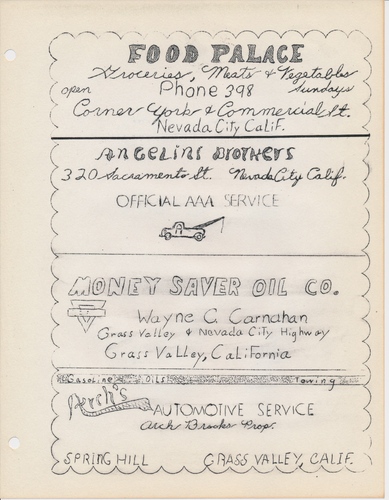 FOOD PALACE
Groceries, Meats & Vegetables
open Phone 398 Sundays
Corner York & Commercial St.
Nevada City Calif.
Angelini Brothers
320 Sacramento St. Nevada City Calif.
OFFICIAL AAA SERVICE
MONEY SAVER OIL CO.
Wayne C. Carnahan
Grass Valley & Nevada City Highway
Grass Valley, California
Gasoline Oils Towing
Arch's
AUTOMOTIVE SERVICE
Arch Brooks Prop.
SPRING HILL GRASS VALLEY, CALIF.